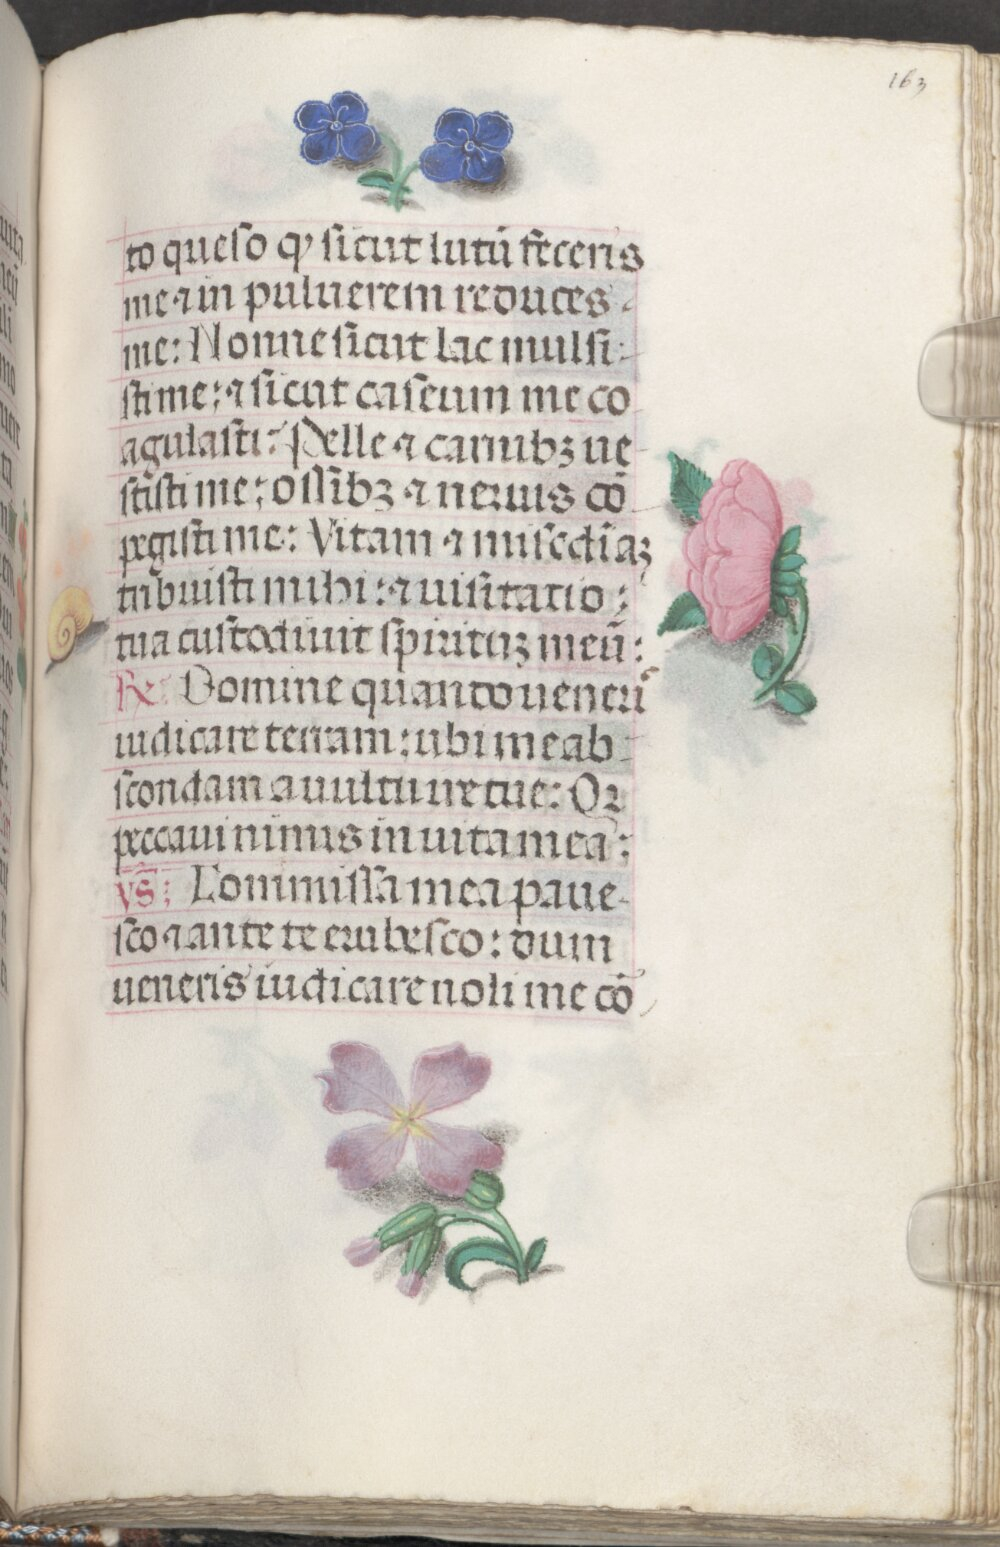 163
to queso qͥ sicut lutū feceris
me ⁊ in puluerem reduces
me: Nonne sicut lac mulsi
sti me; ⁊ sicut caseum me co
agulasti: Pelle ⁊ carnibꝫ ue
stisti me; ossibꝫ ⁊ neruis cō
pegisti me: Vitam ⁊ misĉdiaꝫ
tribuisti mihi: ⁊ uisitatio;
tua custodiuit spirituꝫ meū:
℟ Domine quando ueneris
iudicare terram: ubi me ab
scondam a uultu ire tue: Qꝛ
peccaui nimis in uita mea:
vs̄: Commissa mea paue
sco ⁊ ante te erubesco: dum
ueneris iudicare noli me cō